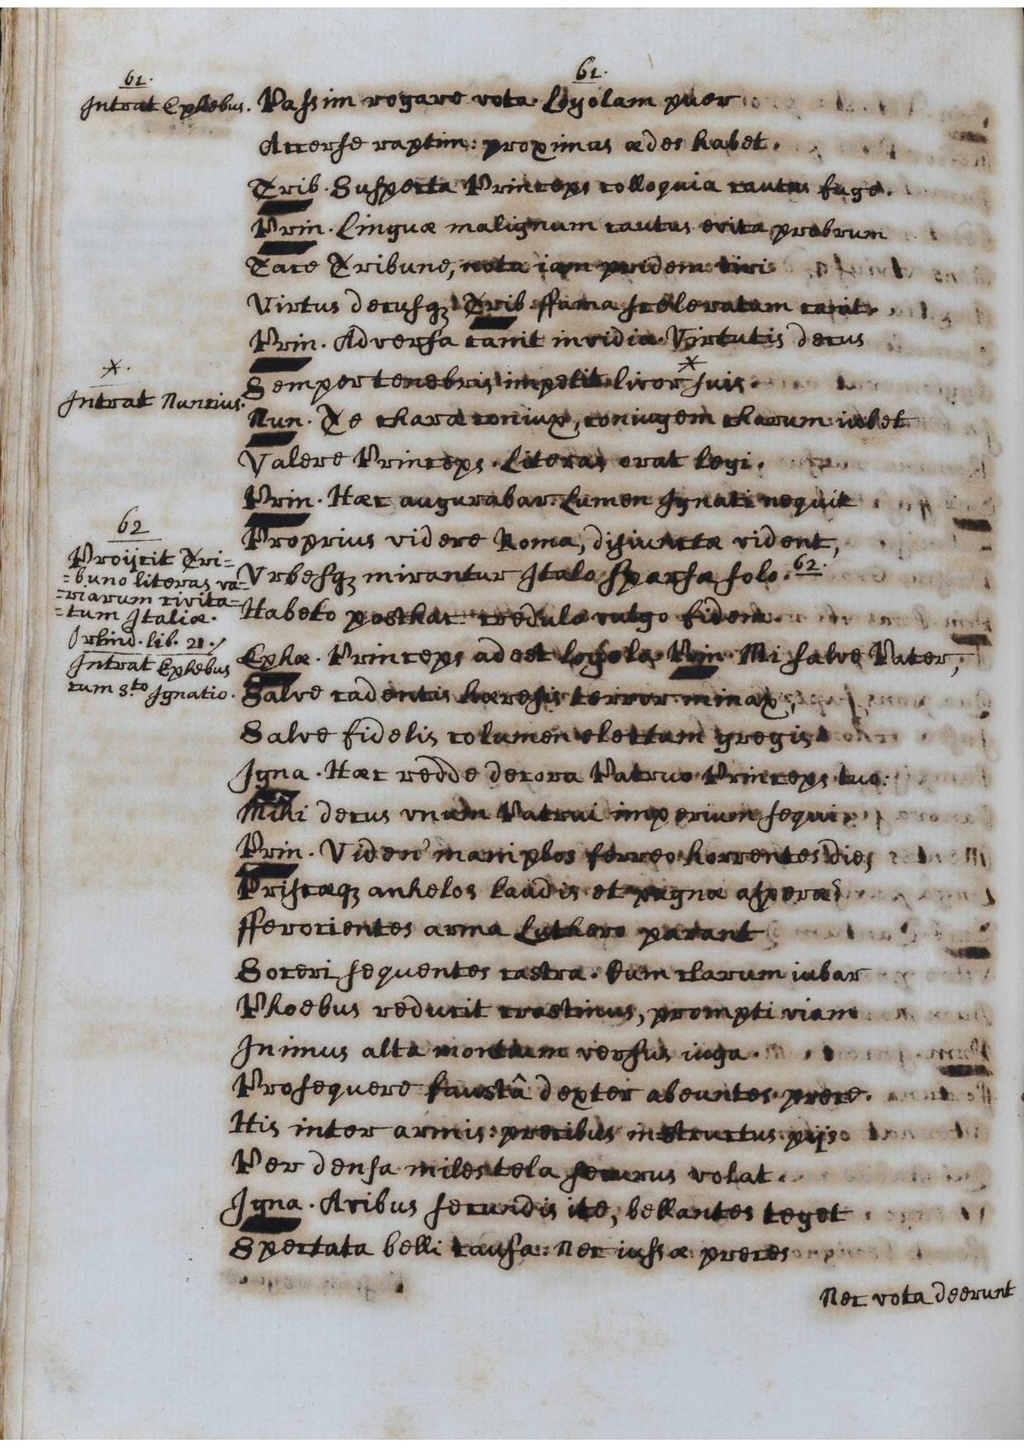 61.
61.
Intrat Ephebus.
Passim rogare vota. Loyolam puer
Accerse raptim: proximas ædes habet.
Trib. Suspecta Princeps colloquia cautus fuge.
Prin. Linguæ malignum cautus evita probrum
Tace Tribune, nota iam pridem viri
Virtus decusqȝ Trib. ffama sceleratam canit.
Prin. Adversa canit invidia. Virtutis decus
*.
Semper tenebris impetit livor * suis.
Intrat Nuncius.
Nun. Te chara coniux, coniugem charum iubet
Valere Princeps. Literas orat legi.
Prin. Hæc augurabar. Lumen Ignati nequit
Proprius videre Roma, disiunctæ vident,
62
Proijcit Tri=
=buno literas va=
=riarum civita=
=tum Italiæ.
lib. 21.
Vrbesqȝ mirantur Italo sparsæ solo. 62.
Habeto posthac credula vulgo fidem.
Intrat Ephebus
cum s.to Ignatio.
Ephæ. Princeps adest Loyola. Prin. Mi salve Pater,
Salve cadentis hæresis terror minax,
Salve fidelis columen electum gregis
Igna. Hæc redde decora Patruo Princeps tuo.
Mihi decus vnum Patrui imperium sequi
Prin. Viden' maniplos ferreo horrentes
Priscæqȝ anhelos laudis et pugnæ asperæ
fferocientes arma Luthero parant
Soceri sequentes castra. Cum clarum iubar
Phoebus reducit crastinus, prompti viam
Inimus alta montium versus iuga.
Prosequere faustâ dexter abeuntes prece.
His inter armis: precibus instructus pijs
Per densa miles tela securus volat.
Igna. Avibus secundis ite, bellantes teget
Spectata belli causa: Nec iussæ preces
Nec vota deerunt